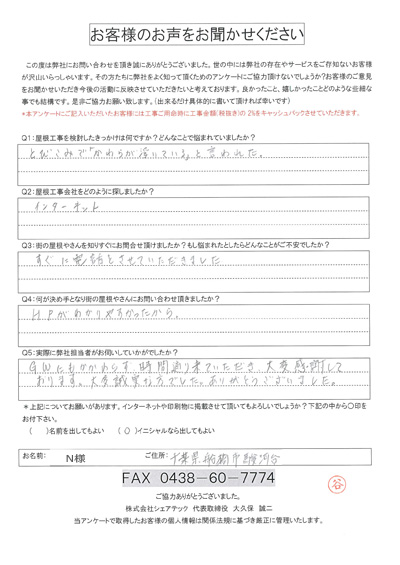 お客様のお声をお聞かせください
この度は弊社にお問い合わせを頂き誠にありがとうございました。世の中には弊社の存在やサービスをご存知ないお客様
が沢山いらっしゃいます。その方たちに弊社をよく知って頂くためのアンケートにご協力頂けないでしょうか?お客様のご意見
をお聞かせいただき今後の活動に反映させていただきたいと考えております。良かったこと、嬉しかったことどのような些細な
事でも結構です。是非ご協力お願い致します。(出来るだけ具体的に書いて頂ければ幸いです)
*本アンケートにご記入いただいたお客様には工事ご用命時に工事金額(税抜き)の2%をキャッシュバックさせていただきます。
Q1:屋根工事を検討したきっかけは何ですか?どんなことで悩まれていましたか?
とびこみで「かわらが浮いている」と言われた。
Q2:屋根工事会社をどのように探しましたか?
インターネット
Q3:街の屋根やさんを知りすぐにお問合せ頂けましたか?もし悩まれたとしたらどんなことがご不安でしたか?
すぐに電話をさせていただきました
Q4:何が決め手となり街の屋根やさんにお問い合わせ頂きましたか?
HPがわかりやすかったから。
Q5:実際に弊社担当者がお伺いしていかがでしたか?
GWにもかかわらず、時間通り来ていただき、大変感謝して
おります。大変誠実な方でした。ありがとうございました。
*上記についてお願いがあります。インターネットや印刷物に掲載させて頂いてもよろしいでしょうか?下記の中から○印を
お付下さい。
( )名前を出してもよい (○)イニシャルなら出してもよい
お名前: N様 ご住所: 千葉県船橋市
FAX 0438-60-7774
ご協力ありがとうございました。
谷
株式会社シェアテック 代表取締役 大久保 誠二
当アンケートで取得したお客様の個人情報は関係法規に基づき厳正に管理いたします。